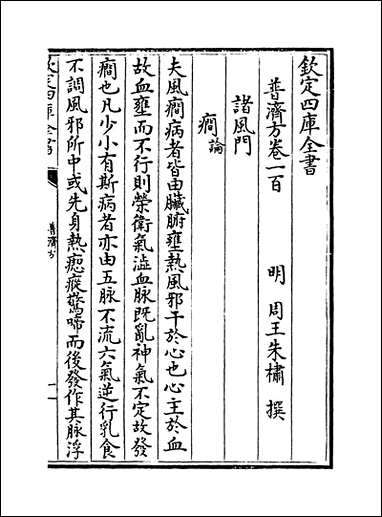 欽定四庫全書
普濟方卷一百
明 周王朱橚 撰
諸風門
癎論
夫風癎病者皆由臟腑壅熱風邪干於心也心主於血
故血壅而不行則榮衛氣澁血脉既亂神氣不定故發
癎也凡少小有斯病者亦由五脉不流六氣逆行乳食
不調風邪所中或先身熱瘛瘲驚啼而後發作其脉浮
欽定四庫全書
普濟方
一